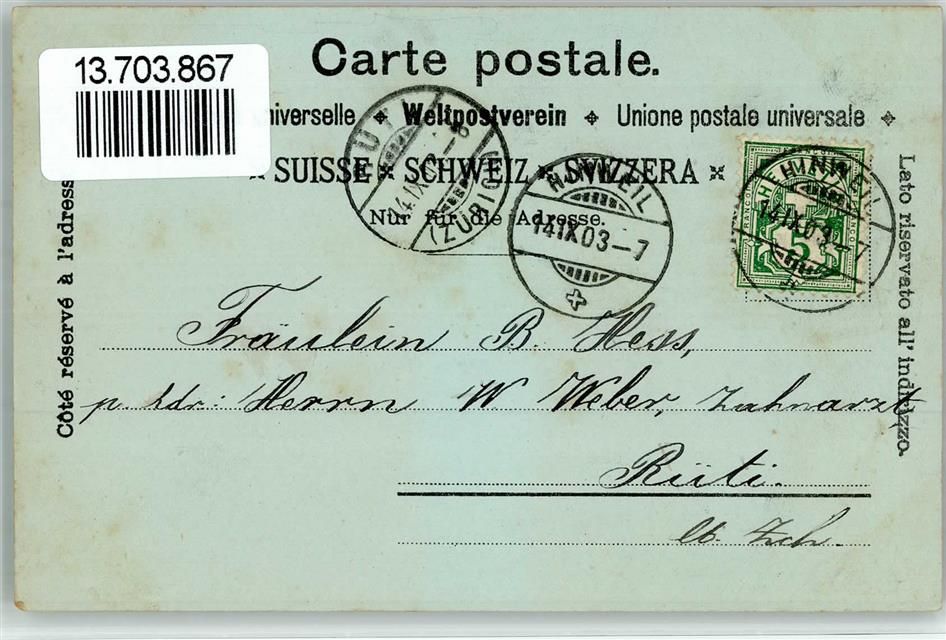 13.703.867
Carte postale.
niverselle ✦ Weltpostverein ✦ Unione postale universale ✦
SUISSE ✕ SCHWEIZ ✕ SVIZZERA ✕
Nur für die Adresse.
Côté réservé à l'adress
Lato riservato all' indirizzo.
RÜTI
(ZÜRICH)
HINWEIL
14 IX 03–7
HINWEIL
14 IX 03–7
5
Fräulein B. Hess,
p. Adr: Herrn W. Weber, Zahnarzt
Rüti.
Ct. Zch.